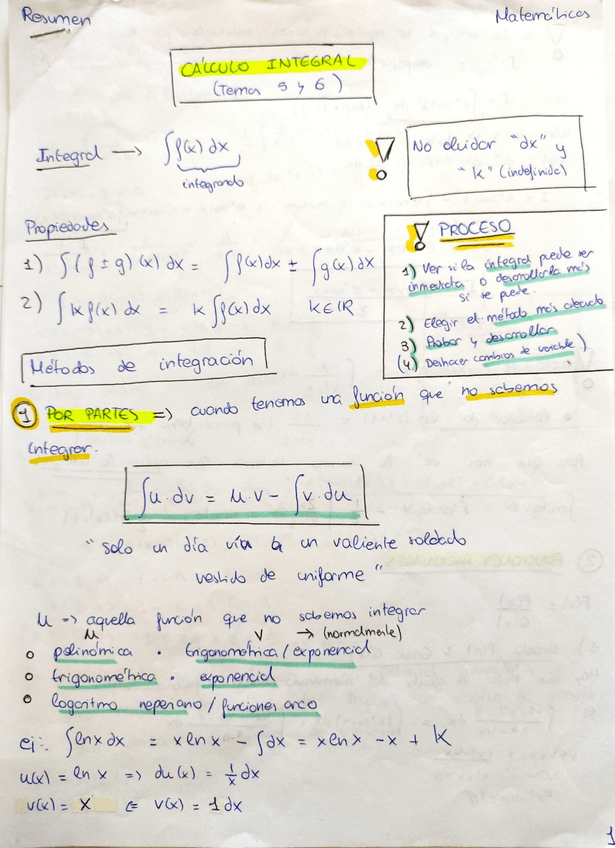 Resumen
Matemáticas
CÁLCULO INTEGRAL
(Tema 5 y 6)
Integral → ∫f(x) dx
integrando
No olvidar "dx" y
"K" (indefinida)
Propiedades
1) ∫(f ± g)(x) dx = ∫f(x)dx ± ∫g(x) dx
2) ∫K f(x) dx = K ∫f(x) dx K∈ℝ
! PROCESO
1) Ver si la integral puede ser
inmediata o desarrollarla más
si se puede.
2) Elegir el método más adecuado
3) Probar y desarrollar
(4) Deshacer cambios de variable)
Métodos de integración
1 POR PARTES => cuando tenemos una función que no sabemos
integrar.
∫u·dv = u·v - ∫v·du
"solo un día vi a un valiente soldado
vestido de uniforme"
u => aquella función que no sabemos integrar
u v → (normalmente)
o polinómica · trigonométrica / exponencial
o trigonométrica · exponencial
o logaritmo neperiano / funciones arco
ej: ∫lnx dx = x ln x - ∫dx = x ln x - x + K
u(x) = ln x => du(x) = 1/x dx
v(x) = x ⇐ v(x) = 1 dx
1